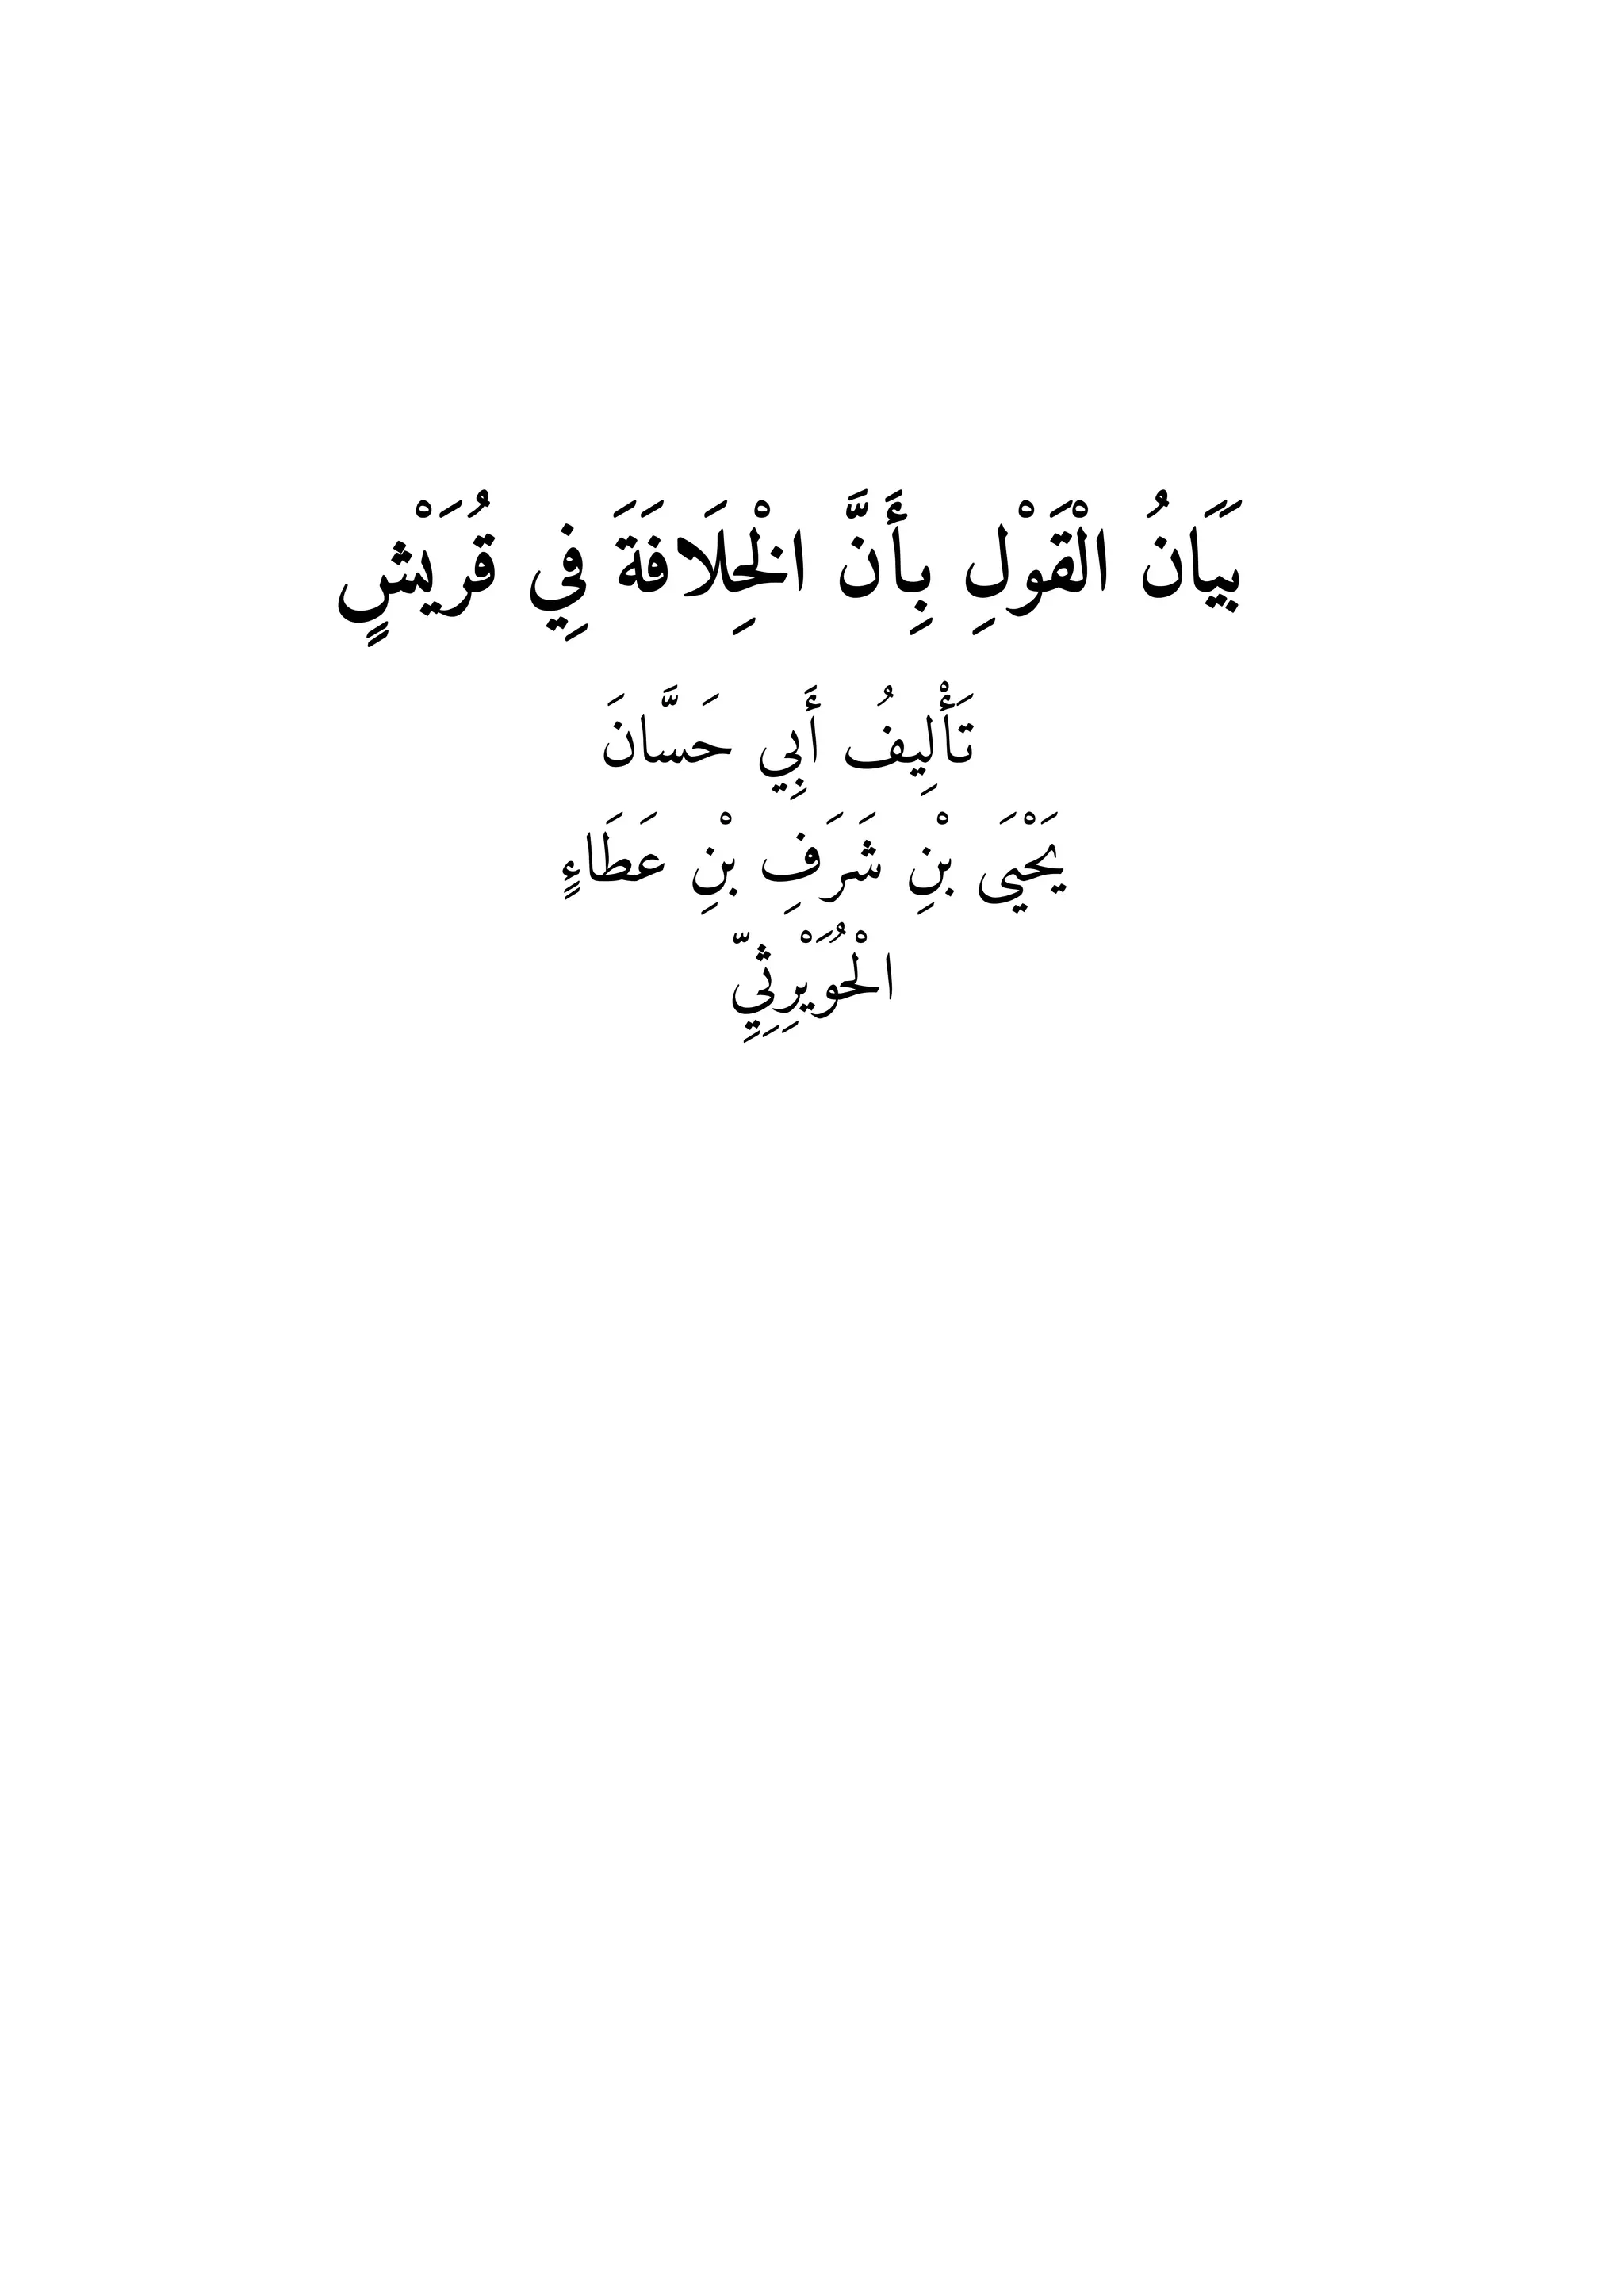 بَيَانُ الْقَوْلِ بِأَنَّ الْخِلَافَةَ فِي قُرَيْشٍ
تَأْلِيفُ أَبِي حَسَّانَ
يَحْيَى بْنِ شَرَفِ بْنِ عَطَاءٍ
الْحُوَيْرِثِيِّ